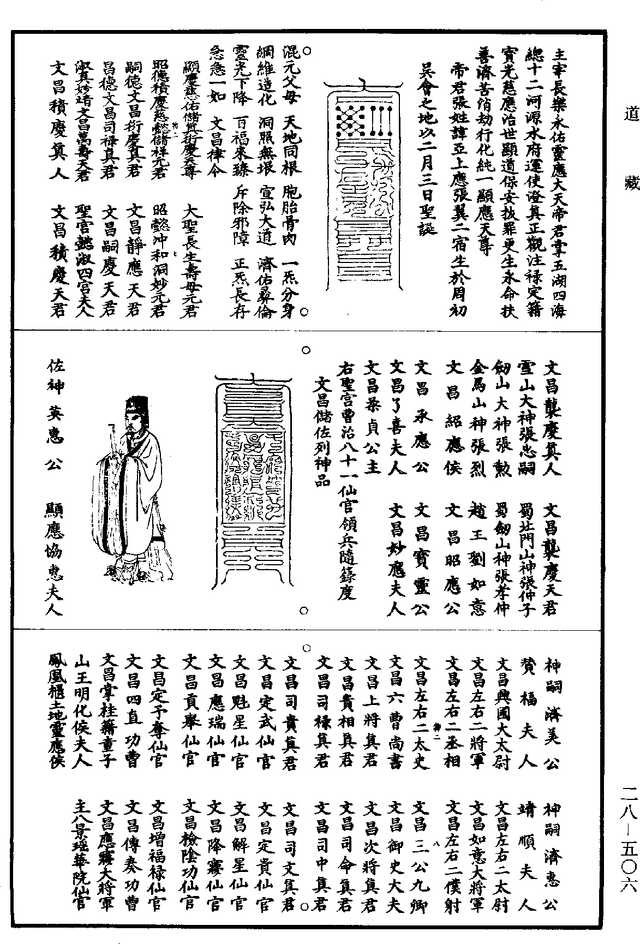 道藏
主宰長樂永佑靈應大天帝君掌五湖四海
總十二河源水府運使證真正觀注祿定籍
寶光慈應治世顯道保安拔罪更生永命扶
善濟苦消劫行化純一顯應天尊
帝君張姓諱亞上應張翼二宿生於周初
吳會之地以二月三日聖誕
混元父母 天地同根 胞胎骨肉 一炁分身
綱維造化 洞照無垠 宣弘大道 濟佑羣倫
靈光下降 百福來臻 斥除邪障 正炁長存
急急一如 文昌律令
顯慶慈佑儲煦衍慶天尊 大聖長生壽母元君
昭德積慶慈懿儲祥元君 昭懿沖和洞妙元君
嗣德文昌衍慶真君 文昌靜應天君
昌德文昌司祿真君 文昌嗣慶天君
淑真妙靖文昌萬壽天君 聖官懿淑四宮夫人
文昌積慶真人 文昌積慶天君
文昌襲慶真人 文昌襲慶天君
靈山大神張忠嗣 蜀北門山神張仲子
劒山大神張勲 蜀劒山神張孝仲
金馬山神張烈 趙王劉如意
文昌紹應侯 文昌昭應公
文昌承應公 文昌寶靈公
文昌了喜夫人 文昌妙應夫人
文昌柔貞公主
右聖宮曹治八十一仙官領兵隨籙度
文昌儲佐列神品
佐神英惠公 顯應協惠夫人
神嗣濟美公 神嗣濟惠公
贊福夫人 靖順夫人
文昌興國大太尉 文昌左右二太尉
文昌左右二將軍 文昌如意大將軍
文昌左右二丞相 文昌左右二僕射
文昌左右二太史 文昌三公九卿
文昌六曹尚書 文昌御史大夫
文昌上將真君 文昌次將真君
文昌貴相真君 文昌司命真君
文昌司祿真君 文昌司中真君
文昌司貴真君 文昌司文真君
文昌定武仙官 文昌定貴仙官
文昌魁星仙官 文昌解星仙官
文昌應瑞仙官 文昌降靈仙官
文昌貢舉仙官 文昌檢陰功仙官
文昌定予奪仙官 文昌增福祿仙官
文昌四直功曹 文昌傳奏功曹
文昌掌桂籍童子 文昌應靈大將軍
山王明化侯夫人 主八景瑶華院仙官
鳳凰櫃土地靈應侯
二八—五〇六